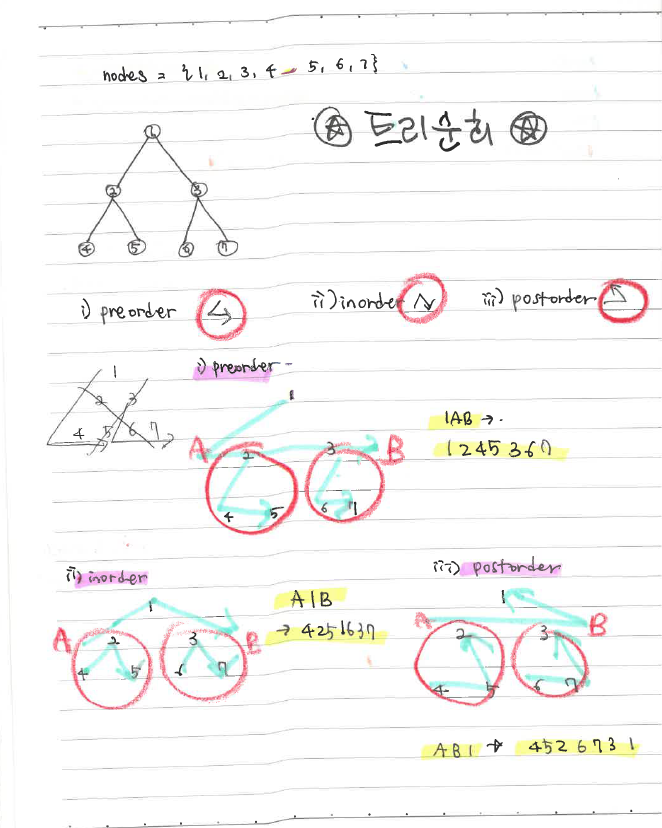 nodes = {1, 2, 3, 4 - 5, 6, 7}
트리순회
1
2 3
4 5 6 7
i) preorder ii) inorder iii) postorder
i) preorder -
1
2 3
4 5 6 7
1
A 2 3 B
4 5 6 7
1AB → .
1245367
ii) inorder
1
A 2 3 B
4 5 6 7
A1B
→ 4251637
iii) postorder
1
A 2 3 B
4 5 6 7
AB1 → 4526731